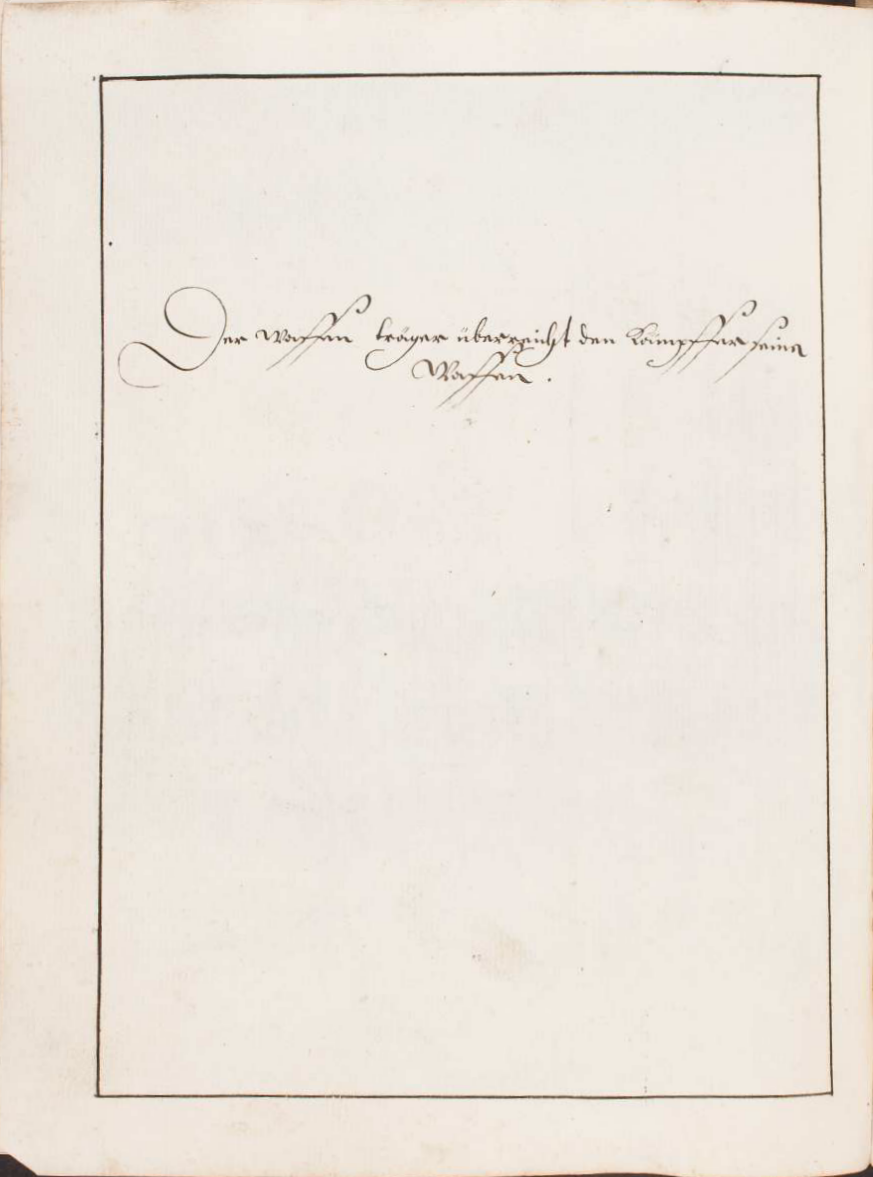 Der Waffen träger überreicht den Kämpffer seine
Waffen .